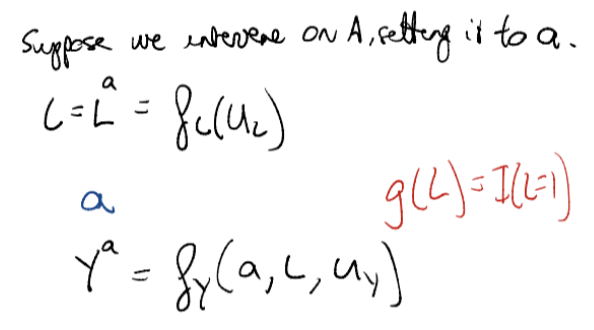 Suppose we intervene on A, setting it to a.
L = L^a = f_L(U_L)
a
g(L) = I(L=1)
Y^a = f_Y(a, L, U_Y)